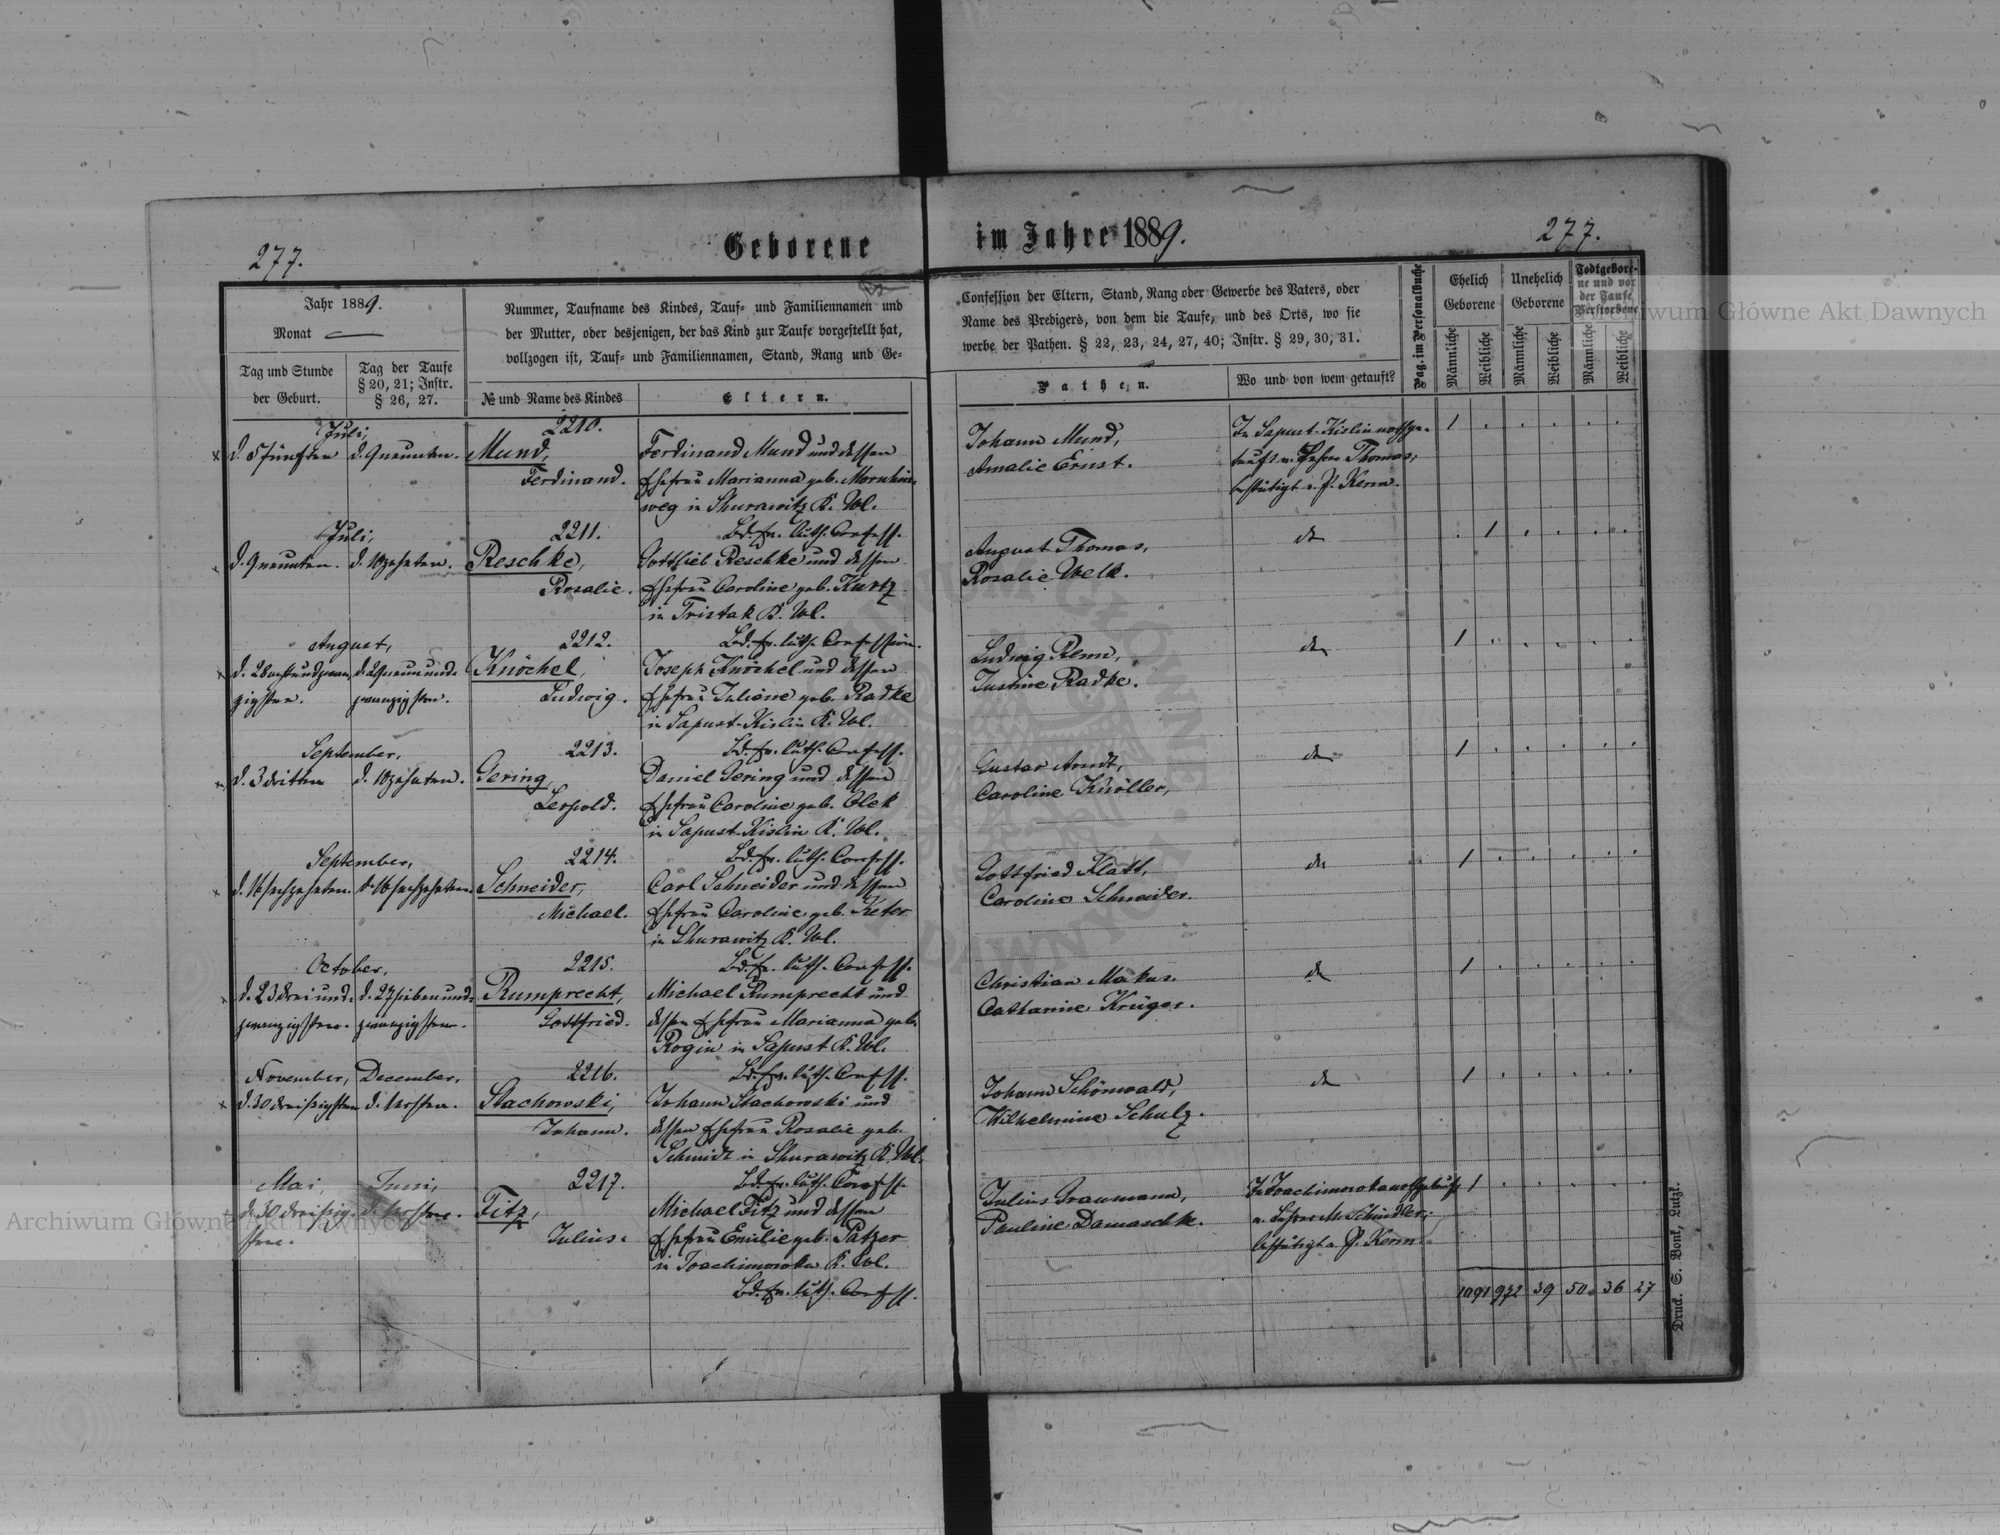 277.
Geborene
im Jahre 1889.
277.
Jahr 1889.
Monat
Tag und Stunde
der Geburt.
Tag der Taufe
§ 20, 21; Instr.
§ 26, 27.
Nummer, Taufname des Kindes, Tauf- und Familiennamen und
der Mutter, oder desjenigen, der das Kind zur Taufe vorgestellt hat,
vollzogen ist, Tauf- und Familiennamen, Stand, Rang und Ge-
№ und Name des Kindes
Eltern.
Confession der Eltern, Stand, Rang oder Gewerbe des Vaters, oder
Name des Predigers, von dem die Taufe, und des Orts, wo sie
werbe der Pathen. § 22, 23, 24, 27, 40; Instr. § 29, 30, 31.
Pathen.
Wo und von wem getauft?
Pag. im Personalbuche
Ehelich
Geborene
Unehelich
Geborene
Todtgebore-
ne und vor
der Taufe
Verstorbene
Männliche
Weibliche
Männliche
Weibliche
Männliche
Weibliche
Juli,
d. 5 fünften
d. 9 neunten.
2210.
Mund,
Ferdinand.
Ferdinand Mund und dessen
Ehefrau Marianna geb. Mornhin-
weg in Shurawitz K. Wl.
Bd. Ev. luth. Confess.
Johann Mund,
Amalie Ernst.
In Sapust-Kislin nothge-
tauft v. Lehrer Thomas,
bestätigt v. P. Kerm.
1
Juli,
d. 9 neunten.
d. 10 zehnten.
2211.
Reschke,
Rosalie.
Gottlieb Reschke und dessen
Ehefrau Caroline geb. Kurtz
in Tristak K. Wl.
Bd. Ev. luth. Confession.
August Thomas,
Rosalie Welk.
do
1
August,
d. 28 achtundzwan-
zigsten.
d. 29 neunund-
zwanzigsten.
2212.
Knöchel,
Ludwig.
Joseph Knöchel und dessen
Ehefrau Juliane geb. Radke
in Sapust-Kislin K. Wl.
Bd. Ev. luth. Confess.
Ludwig Renn,
Justine Radke.
do
1
September,
d. 3 dritten
d. 10 zehnten.
2213.
Gering,
Leopold.
Daniel Gering und dessen
Ehefrau Caroline geb. Olek
in Sapust-Kislin K. Wl.
Bd. Ev. luth. Confess.
Gustav Arndt,
Caroline Knöller,
do
1
September,
d. 16 sechzehnten.
d. 16 sechzehnten.
2214.
Schneider,
Michael.
Carl Schneider und dessen
Ehefrau Caroline geb. Keter
in Shurawitz K. Wl.
Bd. Ev. luth. Confess.
Gottfried Klatt,
Caroline Schneider.
do
1
October,
d. 23 drei und-
zwanzigsten.
d. 27 sieben und-
zwanzigsten.
2215.
Rumprecht,
Gottfried.
Michael Rumprecht und
dessen Ehefrau Marianna geb.
Rogin in Sapust K. Wl.
Bd. Ev. luth. Confess.
Christian Makus.
Catharine Krüger.
do
1
November,
d. 30 dreißigsten
December,
d. 1 ersten.
2216.
Stachowski,
Johann.
Johann Stachowski und
dessen Ehefrau Rosalie geb.
Schmidt in Shurawitz K. Wl.
Bd. Ev. luth. Confess.
Johann Schönwald,
Wilhelmine Schulz.
do
1
Mai,
d. 30 dreißig-
sten.
Juni,
d. 1 ersten.
2217.
Fitz,
Julius.
Michael Fitz und dessen
Ehefrau Emilie geb. Patzer
in Joachimowka K. Wl.
Bd. Ev. luth. Confess.
Julius Graumann,
Pauline Damaschk.
In Joachimowka nothgetauft
v. Lehrer M. Schindler,
bestätigt v. P. Kerm.
1
1091 972 39 50 36 27
Druck. S. Bonk, Lutzk.
Archiwum Główne Akt Dawnych
Archiwum Główne Akt Dawnych